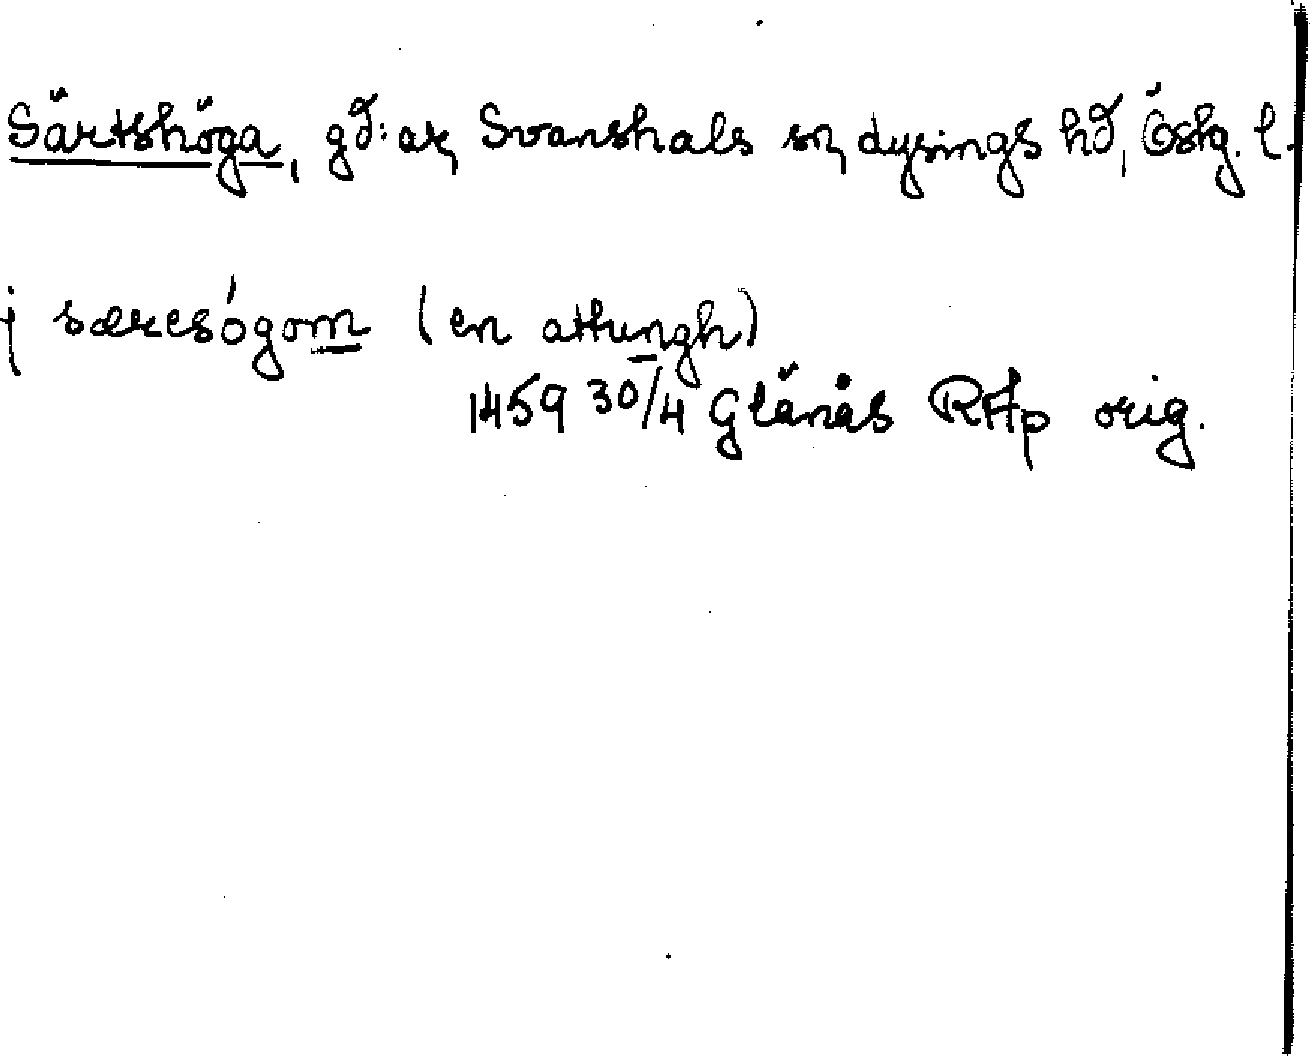 Särtshöga, gd:ar, Svanshals sn, dysings hd, Östg. l.
j særcsógom (en attungh)
1459 30/4 Glänås RAp orig.